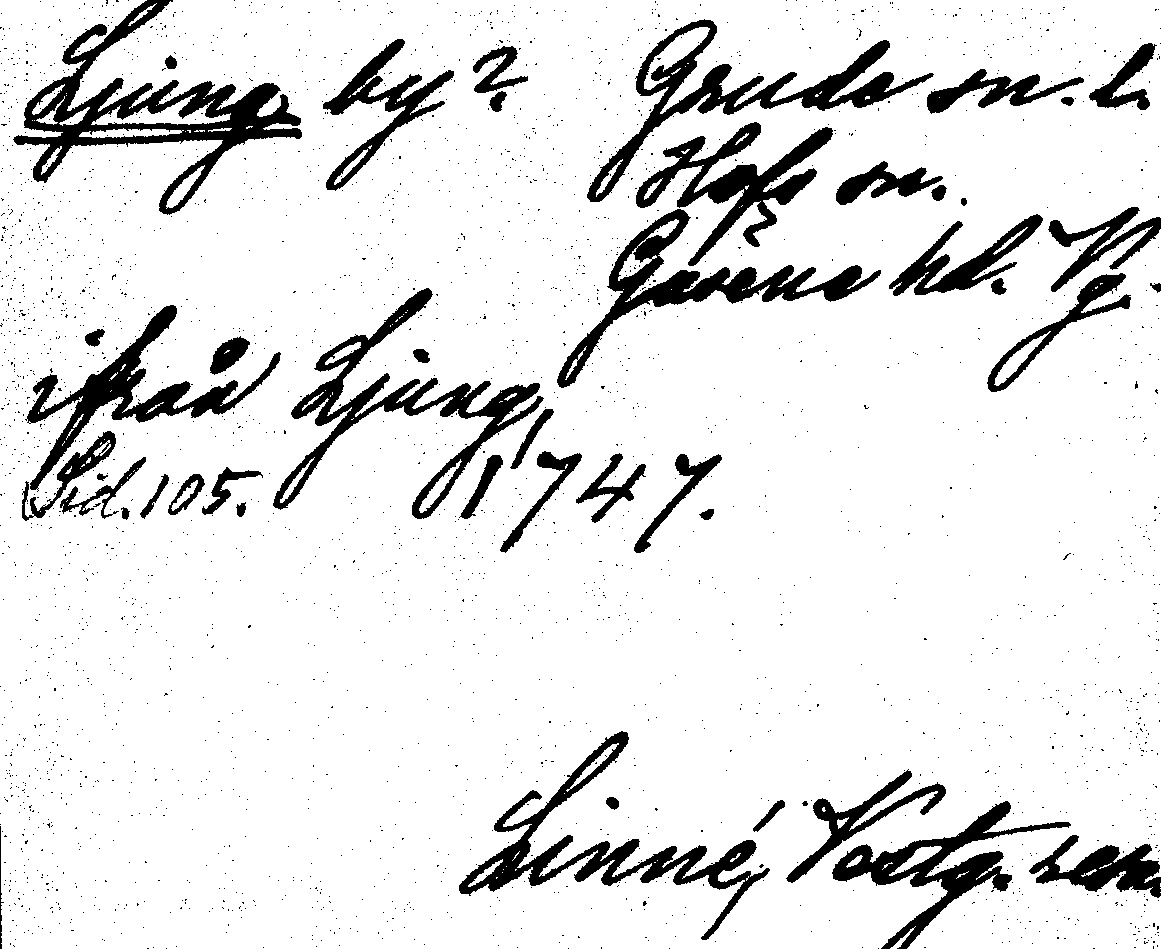 Ljung, by? Grude sn. l.
Hofs sn.
Gäsene hd. Vg.
ifrån Ljung,
Sid. 105. 1747.
Linné, Vestg. resa